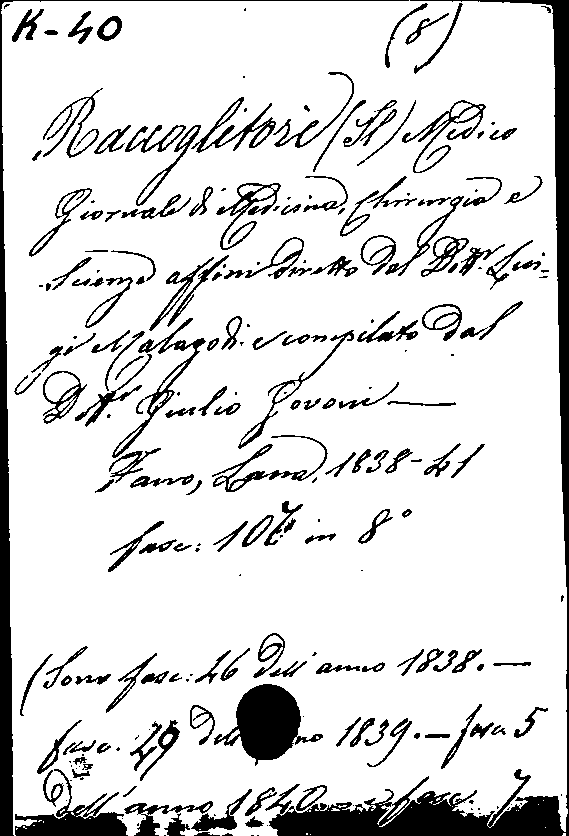 K-40 (8)
Raccoglitore (Il) Medico
Giornale di Medicina, Chirurgia e
Scienze affini diretto dal Dottr. Lui-
gi Malagodi e compilato dal
Dottr. Giulio Govoni —
Fano, Lana, 1838-41
fasc: 107 in 8°
(Sono fasc: 46 dell'anno 1838. —
fasc. 29 dell' anno 1839. — fasc. 5
dell'anno 1840 fasc. 7